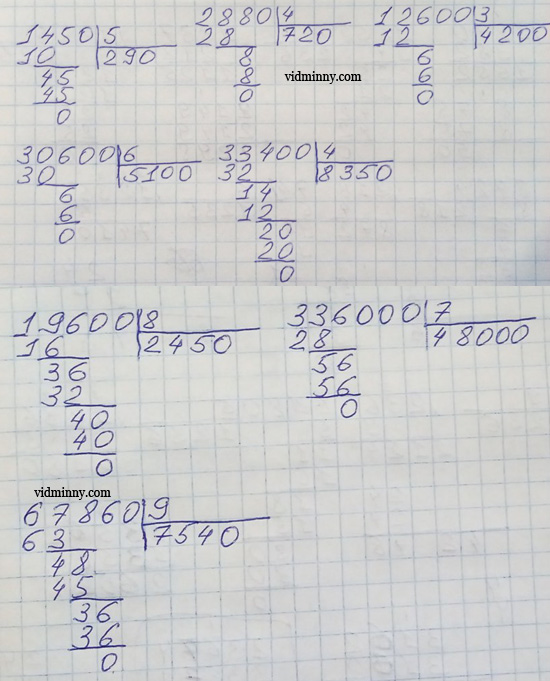 1450 5
10 290
45
45
0
2880 4
28 720
8
8
0
vidminny.com
12600 3
12 4200
6
6
0
30600 6
30 5100
6
6
0
33400 4
32 8350
14
12
20
20
0
19600 8
16 2450
36
32
40
40
0
336000 7
28 48000
56
56
0
vidminny.com
67860 9
63 7540
48
45
36
36
0